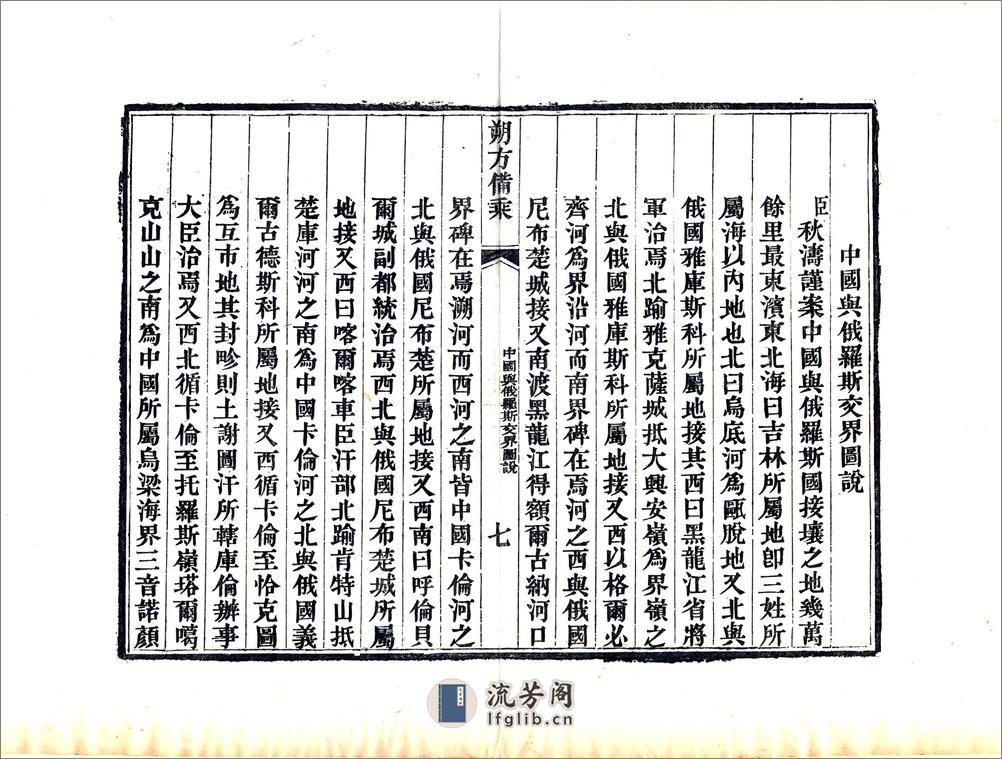 中國與俄羅斯交界圖說
臣秋濤謹案中國與俄羅斯國接壤之地幾萬
餘里最東濱東北海曰吉林所屬地卽三姓所
屬海以內地也北曰烏底河爲甌脫地又北與
俄國雅庫斯科所屬地接其西曰黑龍江省將
軍治焉北踰雅克薩城抵大興安嶺爲界嶺之
北與俄國雅庫斯科所屬地接又西以格爾必
齊河爲界沿河而南界碑在焉河之西與俄國
尼布楚城接又南渡黑龍江得額爾古納河口
朔方備乘
中國與俄羅斯交界圖說
七
界碑在焉溯河而西河之南皆中國卡倫河之
北與俄國尼布楚所屬地接又西南曰呼倫貝
爾城副都統治焉西北與俄國尼布楚城所屬
地接又西曰喀爾喀車臣汗部北踰肯特山抵
楚庫河河之南爲中國卡倫河之北與俄國義
爾古德斯科所屬地接又西循卡倫至恰克圖
爲互市地其封畛則土謝圖汗所轄庫倫辦事
大臣治焉又西北循卡倫至托羅斯嶺塔爾噶
克山山之南爲中國所屬烏梁海界三音諾顏
流芳阁
lfglib.cn